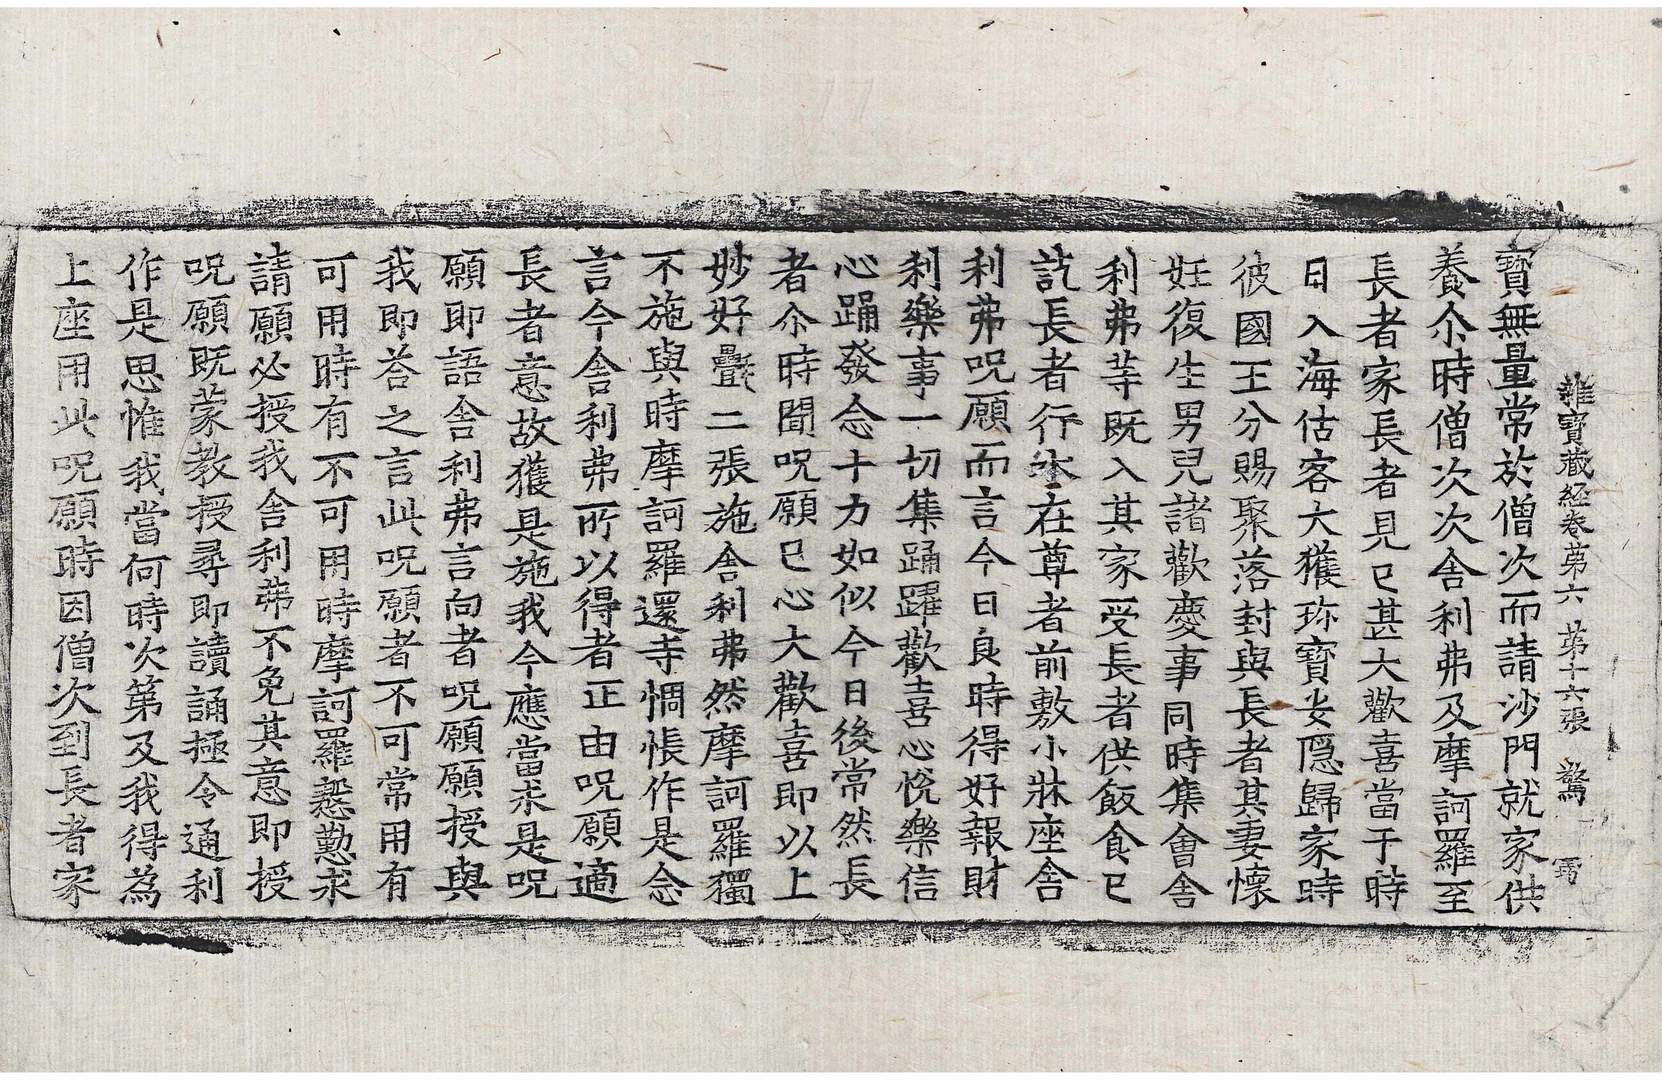 雜寶藏經卷第六 第十六張 驚
寶無量常於僧次而請沙門就家供
養尒時僧次次舍利弗及摩訶羅至
長者家長者見已甚大歡喜當于時
日入海估客大獲珎寶安隱歸家時
彼國王分賜聚落封與長者其妻懷
妊復生男兒諸歡慶事同時集會舍
利弗䓁既入其家受長者供飯食已
訖長者行水在尊者前敷小牀座舍
利弗呪願而言今日良時得好報財
利樂事一切集踊躍歡喜心悅樂信
心踊發念十力如似今日後常然長
者尒時聞呪願已心大歡喜即以上
妙好疊二張施舍利弗然摩訶羅獨
不施與時摩訶羅還寺惆悵作是念
言今舍利弗所以得者正由呪願適
長者意故獲是施我今應當求是呪
願即語舍利弗言向者呪願願授與
我即荅之言此呪願者不可常用有
可用時有不可用時摩訶羅慇懃求
請願必授我舍利弗不免其意即授
呪願既蒙教授尋即讀誦極令通利
作是思惟我當何時次第及我得為
上座用此呪願時因僧次到長者家